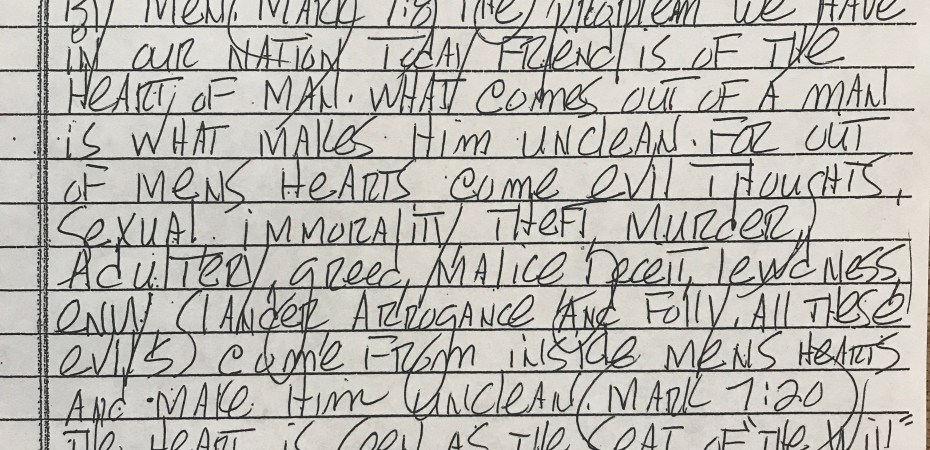 By Men. Mark 7:8 The) Problem we Have
in our NATion TodAy Friend is of The
HeArT, oF MAN. WHAT comes ouT oF A mAN
is WHAT MAkes Him uncleAN. For ouT
oF MeNs HeArTs come evil THougHTs,
SexuAl immorAliTy THeFT, Murder,
AdulTery, greed, MAlice Deceit, lewdNess
eNvy, SlANder ArrogANce ANd Folly. All THese
evil(s) come From iNside meNs HeArTs
ANd MAke Him UncleAN. (MArk 7:20)
THe HeArT is (see) As THe SeAT oF "THe Will"